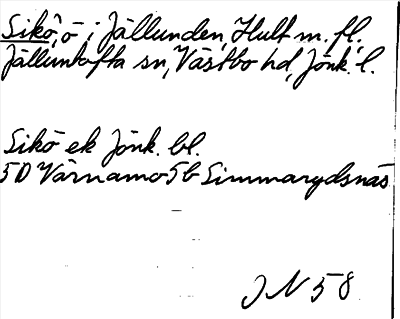 Sikö, ö i Jällunden, Hult m. fl.,
Jälluntofta sn, Västbo hd, Jönk. l.
Sikö ek Jönk. bl.
5D Värnamo 5b Simmarydsnäs
J N 58